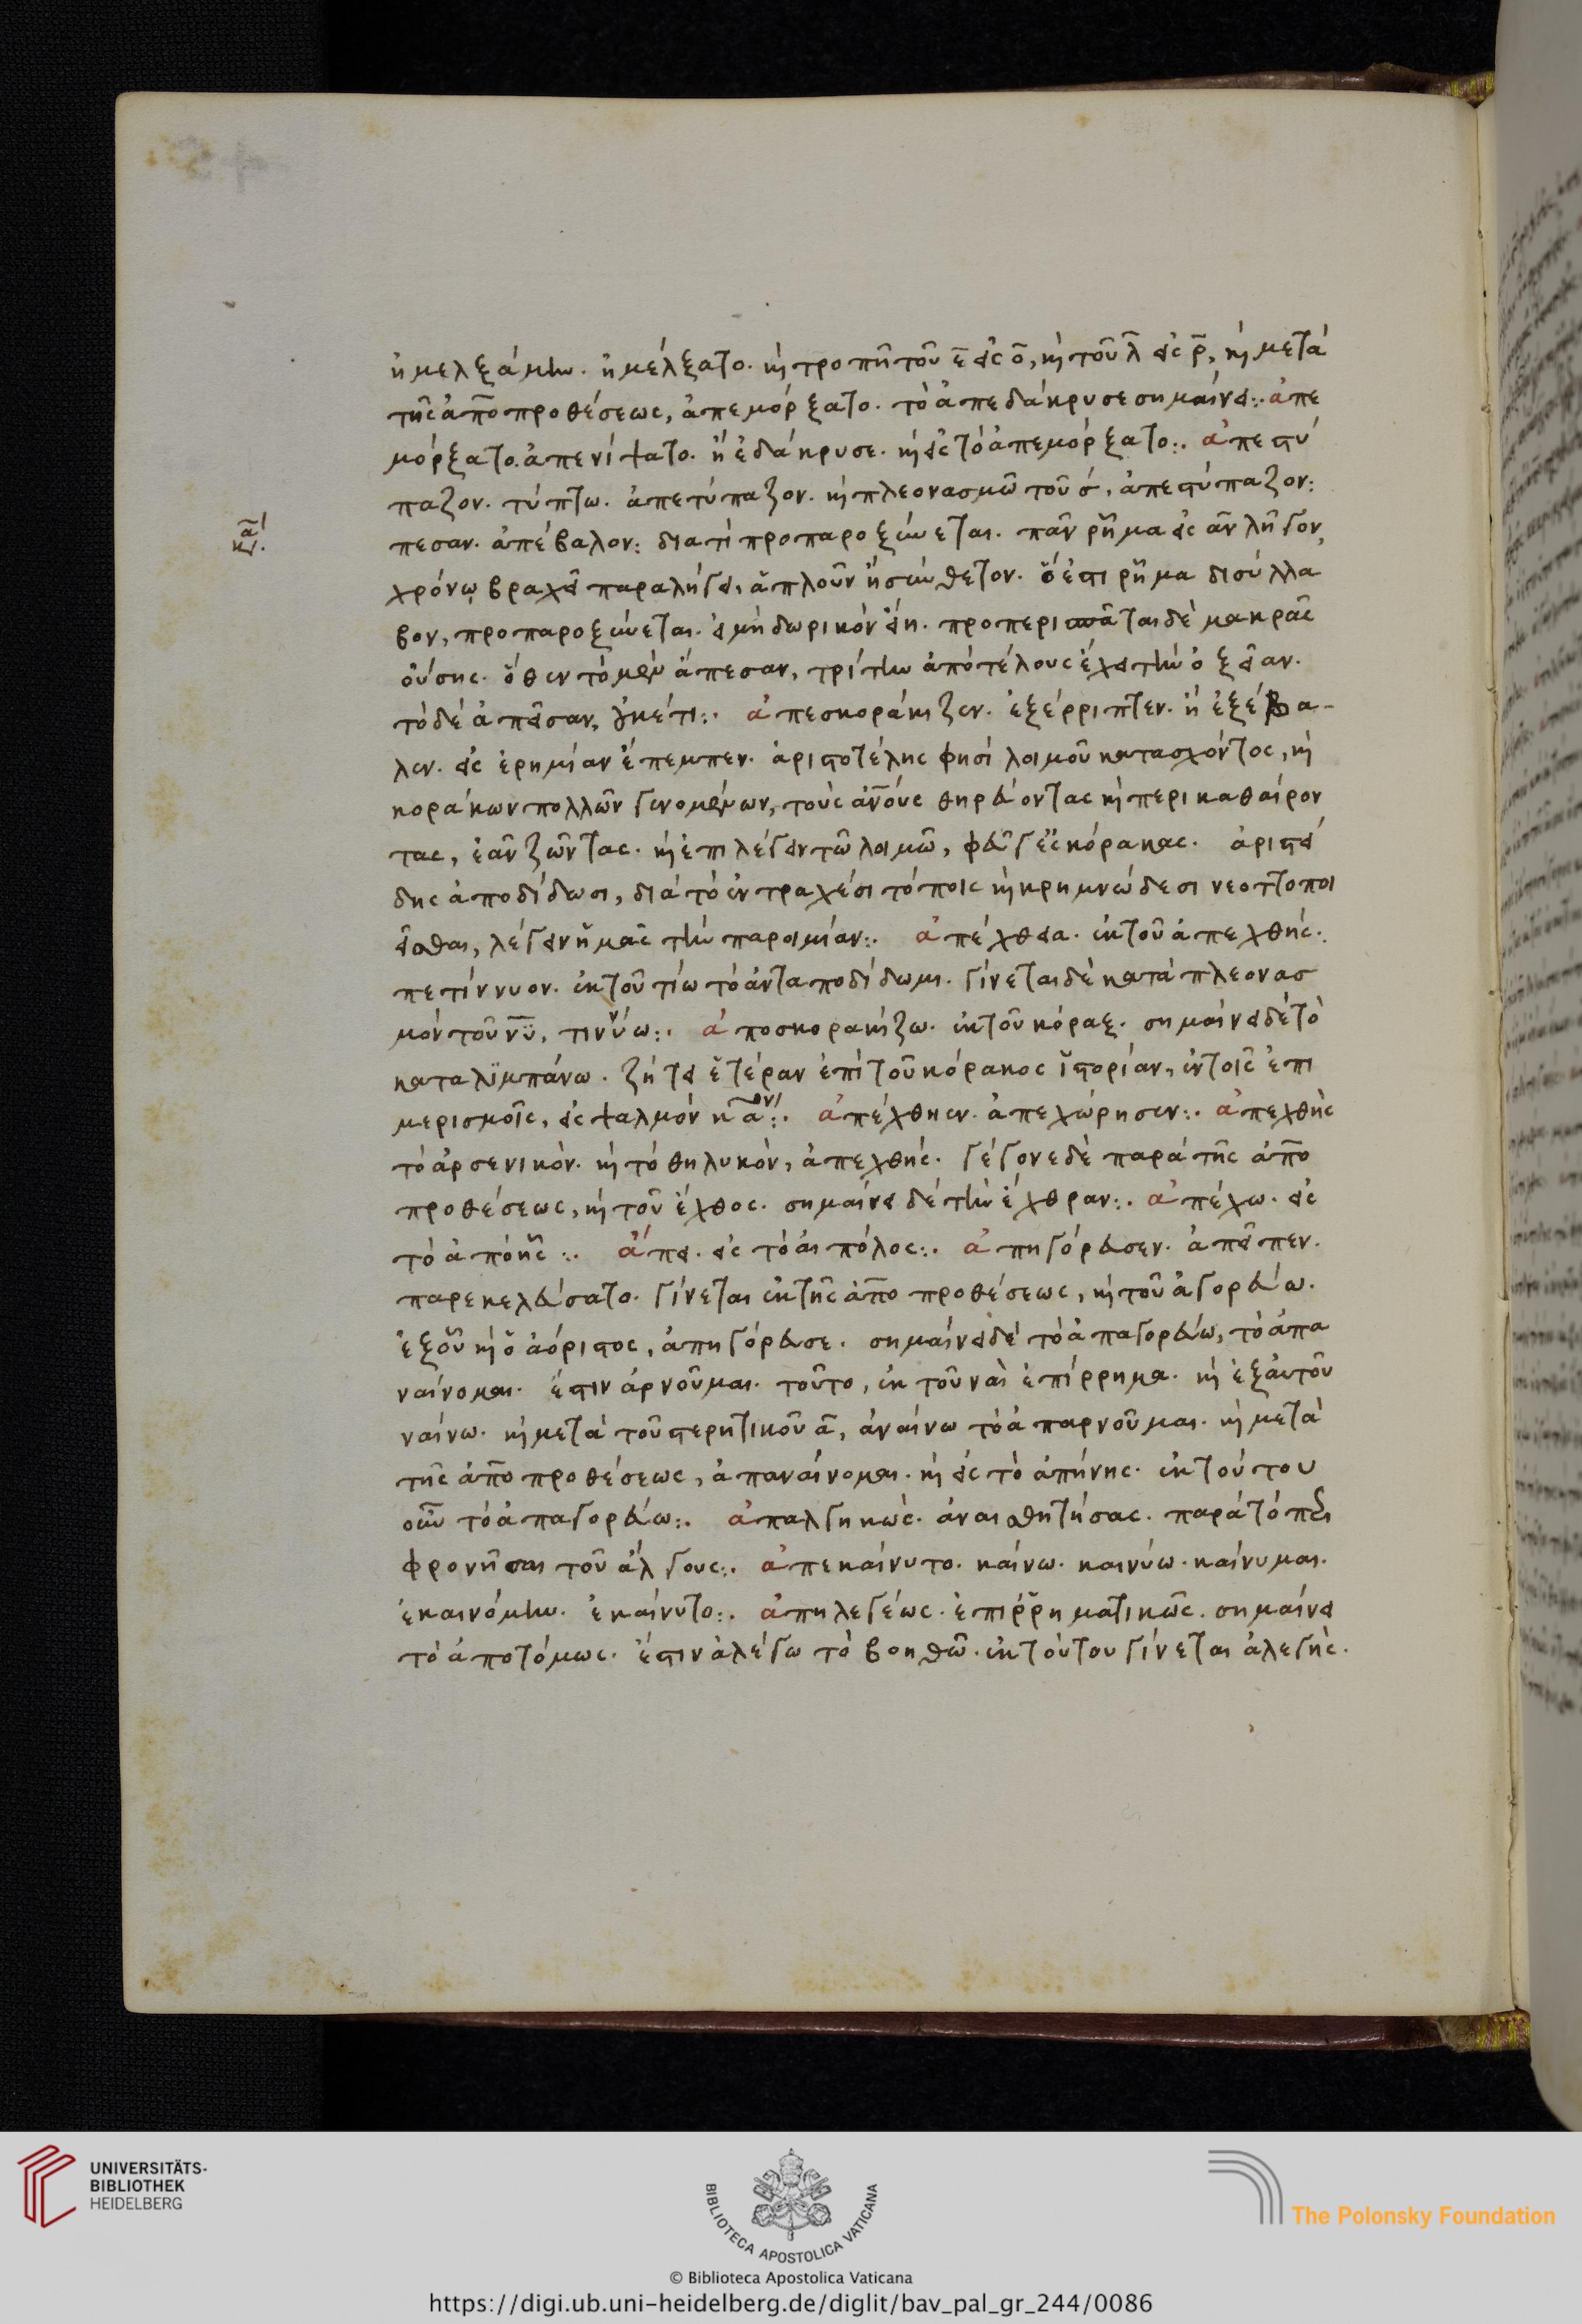 ἠμελξάμην. ἠμέλξατο. καὶ τροπῆ τοῦ ε̄ εἰς ο̄, καὶ τοῦ λ̄ εἰς ρ̄, καὶ μετὰ
τῆς ἀπὸ προθέσεως, ἀπεμόρξατο. τὸ ἀπεδάκρυσε σημαίνει:. ἀπε
μόρξατο. ἀπενίψατο. ἢ ἐδάκρυσε. καὶ εἰς τὸ ἀπεμόρξατο:. ἀπεστύ
παζον. τύπτω. ἀπετύπαζον. καὶ πλεονασμῶ τοῦ σ, ἀπεστύπαζον:
πεσαν. ἀπέβαλον: διατί προπαροξύνεται. πᾶν ῥῆμα εἰς αν λῆγον,
χρόνῳ βραχεῖ παραλήγει, ἁπλοῦν ἢ σύνθετον. ὅ ἐστι ῥῆμα δισύλλα
βον, προπαροξύνεται. εἰ μὴ δωρικὸν εἴη. προπερισπᾶται δὲ μακρᾶς
οὔσης. ὅθεν τὸ μὲν ἄπεσαν, τρίτην ἀπὸ τέλους ἔχει τὴν ὀξεῖαν.
τὸ δὲ ἀπεῖσαν, οὐκέτι:. ἀπεσκοράκιζεν. ἐξέρριπτεν. ἢ ἐξέβα-
λεν. εἰς ἐρημίαν ἔπεμπεν. ἀριστοτέλης φησὶ λοιμοῦ κατασχόντος, καὶ
κοράκων πολλῶν γενομένων, τοὺς ἀνους θηρεύοντας καὶ περικαθαίρον
τας, ἐᾶν ζῶντας. καὶ ἐπιλέγειν τῶ λοιμῶ, φεῦγε ἐς κόρακας. ἀριστεί
δης ἀποδίδωσι, διὰ τὸ ἐν τραχέσι τόποις καὶ κρημνώδεσι νεοττοποι
εῖσθαι, λέγειν ἡμᾶς τὴν παροιμίαν:. ἀπέχθεια. ἐκ τοῦ ἀπεχθής.
πετίννυον. ἐκ τοῦ τίω τὸ ἀνταποδίδωμι. γίνεται δὲ κατὰ πλεονασ
μὸν τοῦ νῡ, τιννύω:. ἀποσκορακίζω. ἐκ τοῦ κόραξ. σημαίνει δὲ τὸ
καταλϊμπάνω. ζήτει ἑτέραν ἐπὶ τοῦ κόρακος ἱστορίαν, ἐν τοῖς ἐπι
μερισμοῖς, εἰς ψαλμὸν κ̄ᾱον:. ἀπέχθηεν. ἀπεχώρησεν:. ἀπεχθὴς
τὸ ἀρσενικὸν. καὶ τὸ θηλυκὸν, ἀπεχθής. γέγονε δὲ παρὰ τῆς ἀπὸ
προθέσεως, καὶ τοῦ ἔχθος. σημαίνει δὲ τὴν ἔχθραν:. ἀπέχω. εἰς
τὸ ἀπόης:. ἄπει. εἰς τὸ αἰπόλος:. ἀπηγόρευσεν. ἀπεῖπεν.
παρεκελεύσατο. γίνεται ἐκ τῆς ἀπὸ προθέσεως, καὶ τοῦ ἀγορεύω.
ἐξ οὗ καὶ ὁ ἀόριστος, ἀπηγόρευσε. σημαίνει δὲ τὸ ἀπαγορεύω, τὸ ἀπα
ναίνομαι. ἔστιν ἀρνοῦμαι. τοῦτο, ἐκ τοῦ ναὶ ἐπίρρημα. καὶ ἐξ αὐτοῦ
ναίνω. καὶ μετὰ τοῦ στερητικοῦ ᾱ, ἀναίνω τὸ ἀπαρνοῦμαι. καὶ μετὰ
τῆς ἀπὸ προθέσεως, ἀπαναίνομαι. καὶ εἰς τὸ ἀπήνης. ἐκ τούτου
οὖν τὸ ἀπαγορεύω:. ἀπαλγηκὼς. ἀναισθητήσας. παρὰ τὸ
φρονῆσαι τοῦ ἄλγους:. ἀπεκαίνυτο. καίνω. καινύω. καίνυμαι.
ἐκαινόμην. ἐκαίνυτο:. ἀπηλεγέως. ἐπιῤῥηματικῶς. σημαίνει
τὸ ἀποτόμως. ἔστιν ἀλέγω τὸ βοηθῶ. ἐκ τούτου γίνεται ἀλεγὴς.
UNIVERSITÄTS-
BIBLIOTHEK
HEIDELBERG
BIBLIOTECA APOSTOLICA VATICANA
The Polonsky Foundation
© Biblioteca Apostolica Vaticana
https://digi.ub.uni-heidelberg.de/diglit/bav_pal_gr_244/0086